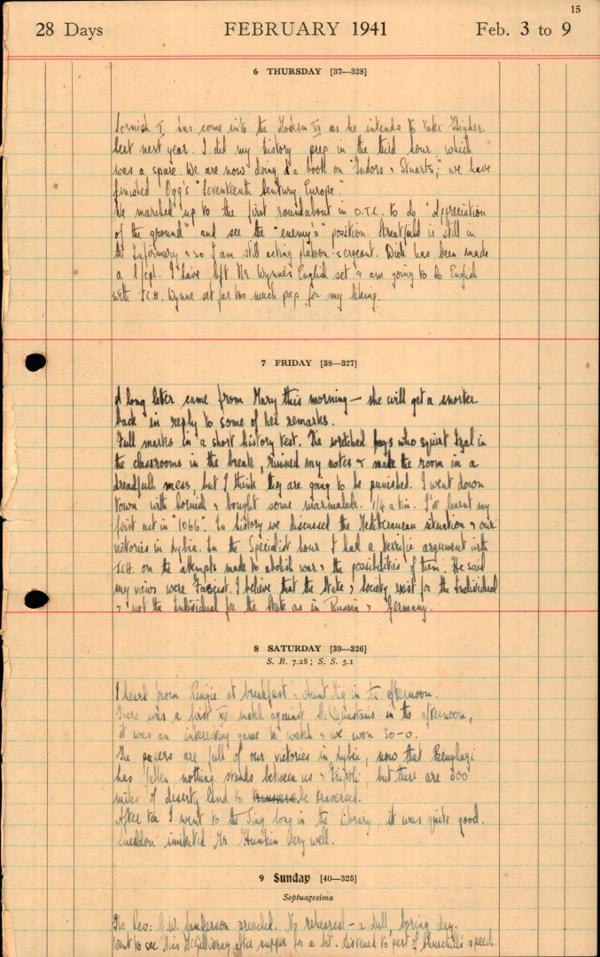 15
28 Days FEBRUARY 1941 Feb. 3 to 9
6 THURSDAY [37—328]
Cornish I. has come into the Modern VI as he intends to take Higher
Cert next year. I did my history prep in the third hour which
was a spare. We are now doing a book on "Tudors & Stuarts," we have
finished "Ogg's "Seventeenth Century Europe."
We marched up to the first roundabout in O.T.C. to do "appreciation
of the ground" and see the "enemy's" position. Streatfield is still in
the Infirmary & so I am still acting platoon-sergeant. Dick has been made
a l/cpl. I have left Mr Wynne's English set & am going to do English
with J.C.H. Wynne set far too much prep for my liking.
7 FRIDAY [38—327]
A long letter came from Mary this morning — she will get a snorter
back in reply to some of her remarks.
Full marks in a short history test. The wretched fags who squirt Izal in
the classrooms in the break, ruined my notes & make the room in a
dreadful mess, but I think they are going to be punished. I went down
town with Cornish & bought some marmalade. 1/4 a tin. I've learnt my
first act in "1066". In history we discussed the Mediterranean situation & our
victories in Lybia. In the Specialist hour I had a terrific argument with
J.C.H. on the attempts made to abolish war & the possibilities of them. He said
my views were Fascist. I believe that the State & society exist for the Individual
& not the Individual for the State as in Russia & Germany.
8 SATURDAY [39—326]
S. R. 7.28; S. S. 5.1
I heard from Ringie at breakfast & Aunt in the afternoon.
There was a first XV match against St. Dunstan's in the afternoon,
it was an interesting game to watch & we won 30-0.
The papers are full of our victories in Lybia, now that Benghazi
has fallen nothing stands between us & Tripoli, but there are 300
miles of deserty land to be traversed.
After tea I went to the Sing Song in the Library, it was quite good.
Sneddon imitated Mr very well.
9 Sunday [40—325]
Septuagesima
The Rev: C.W. Sanderson preached. No rehearsal - a dull, boring day.
Went to see Miss McGillivray after supper for a bit. Listened to part of Churchill's speech.